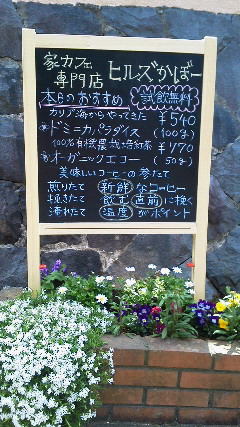 家カフェ
専門店 ヒルズかぼー
本日のおすすめ 試飲無料
カリブ海からやってきた ¥540
ドミニカパラダイス (100g)
100%有機農栽培紅茶 ¥770
オーガニックエコー (50g)
美味しいコーヒーの参たて
煎りたて 新鮮なコーヒー
挽きたて 飲む直前に挽く
淹れたて 温度がポイント